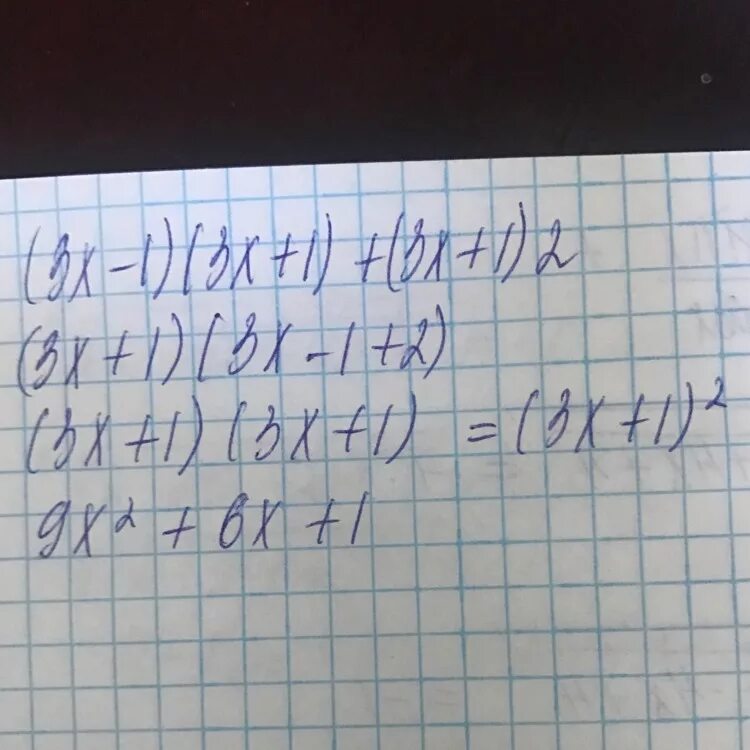 (3x-1)(3x+1)+(3x+1)2
(3x+1)(3x-1+2)
(3x+1)(3x+1) = (3x+1)²
9x² + 6x + 1